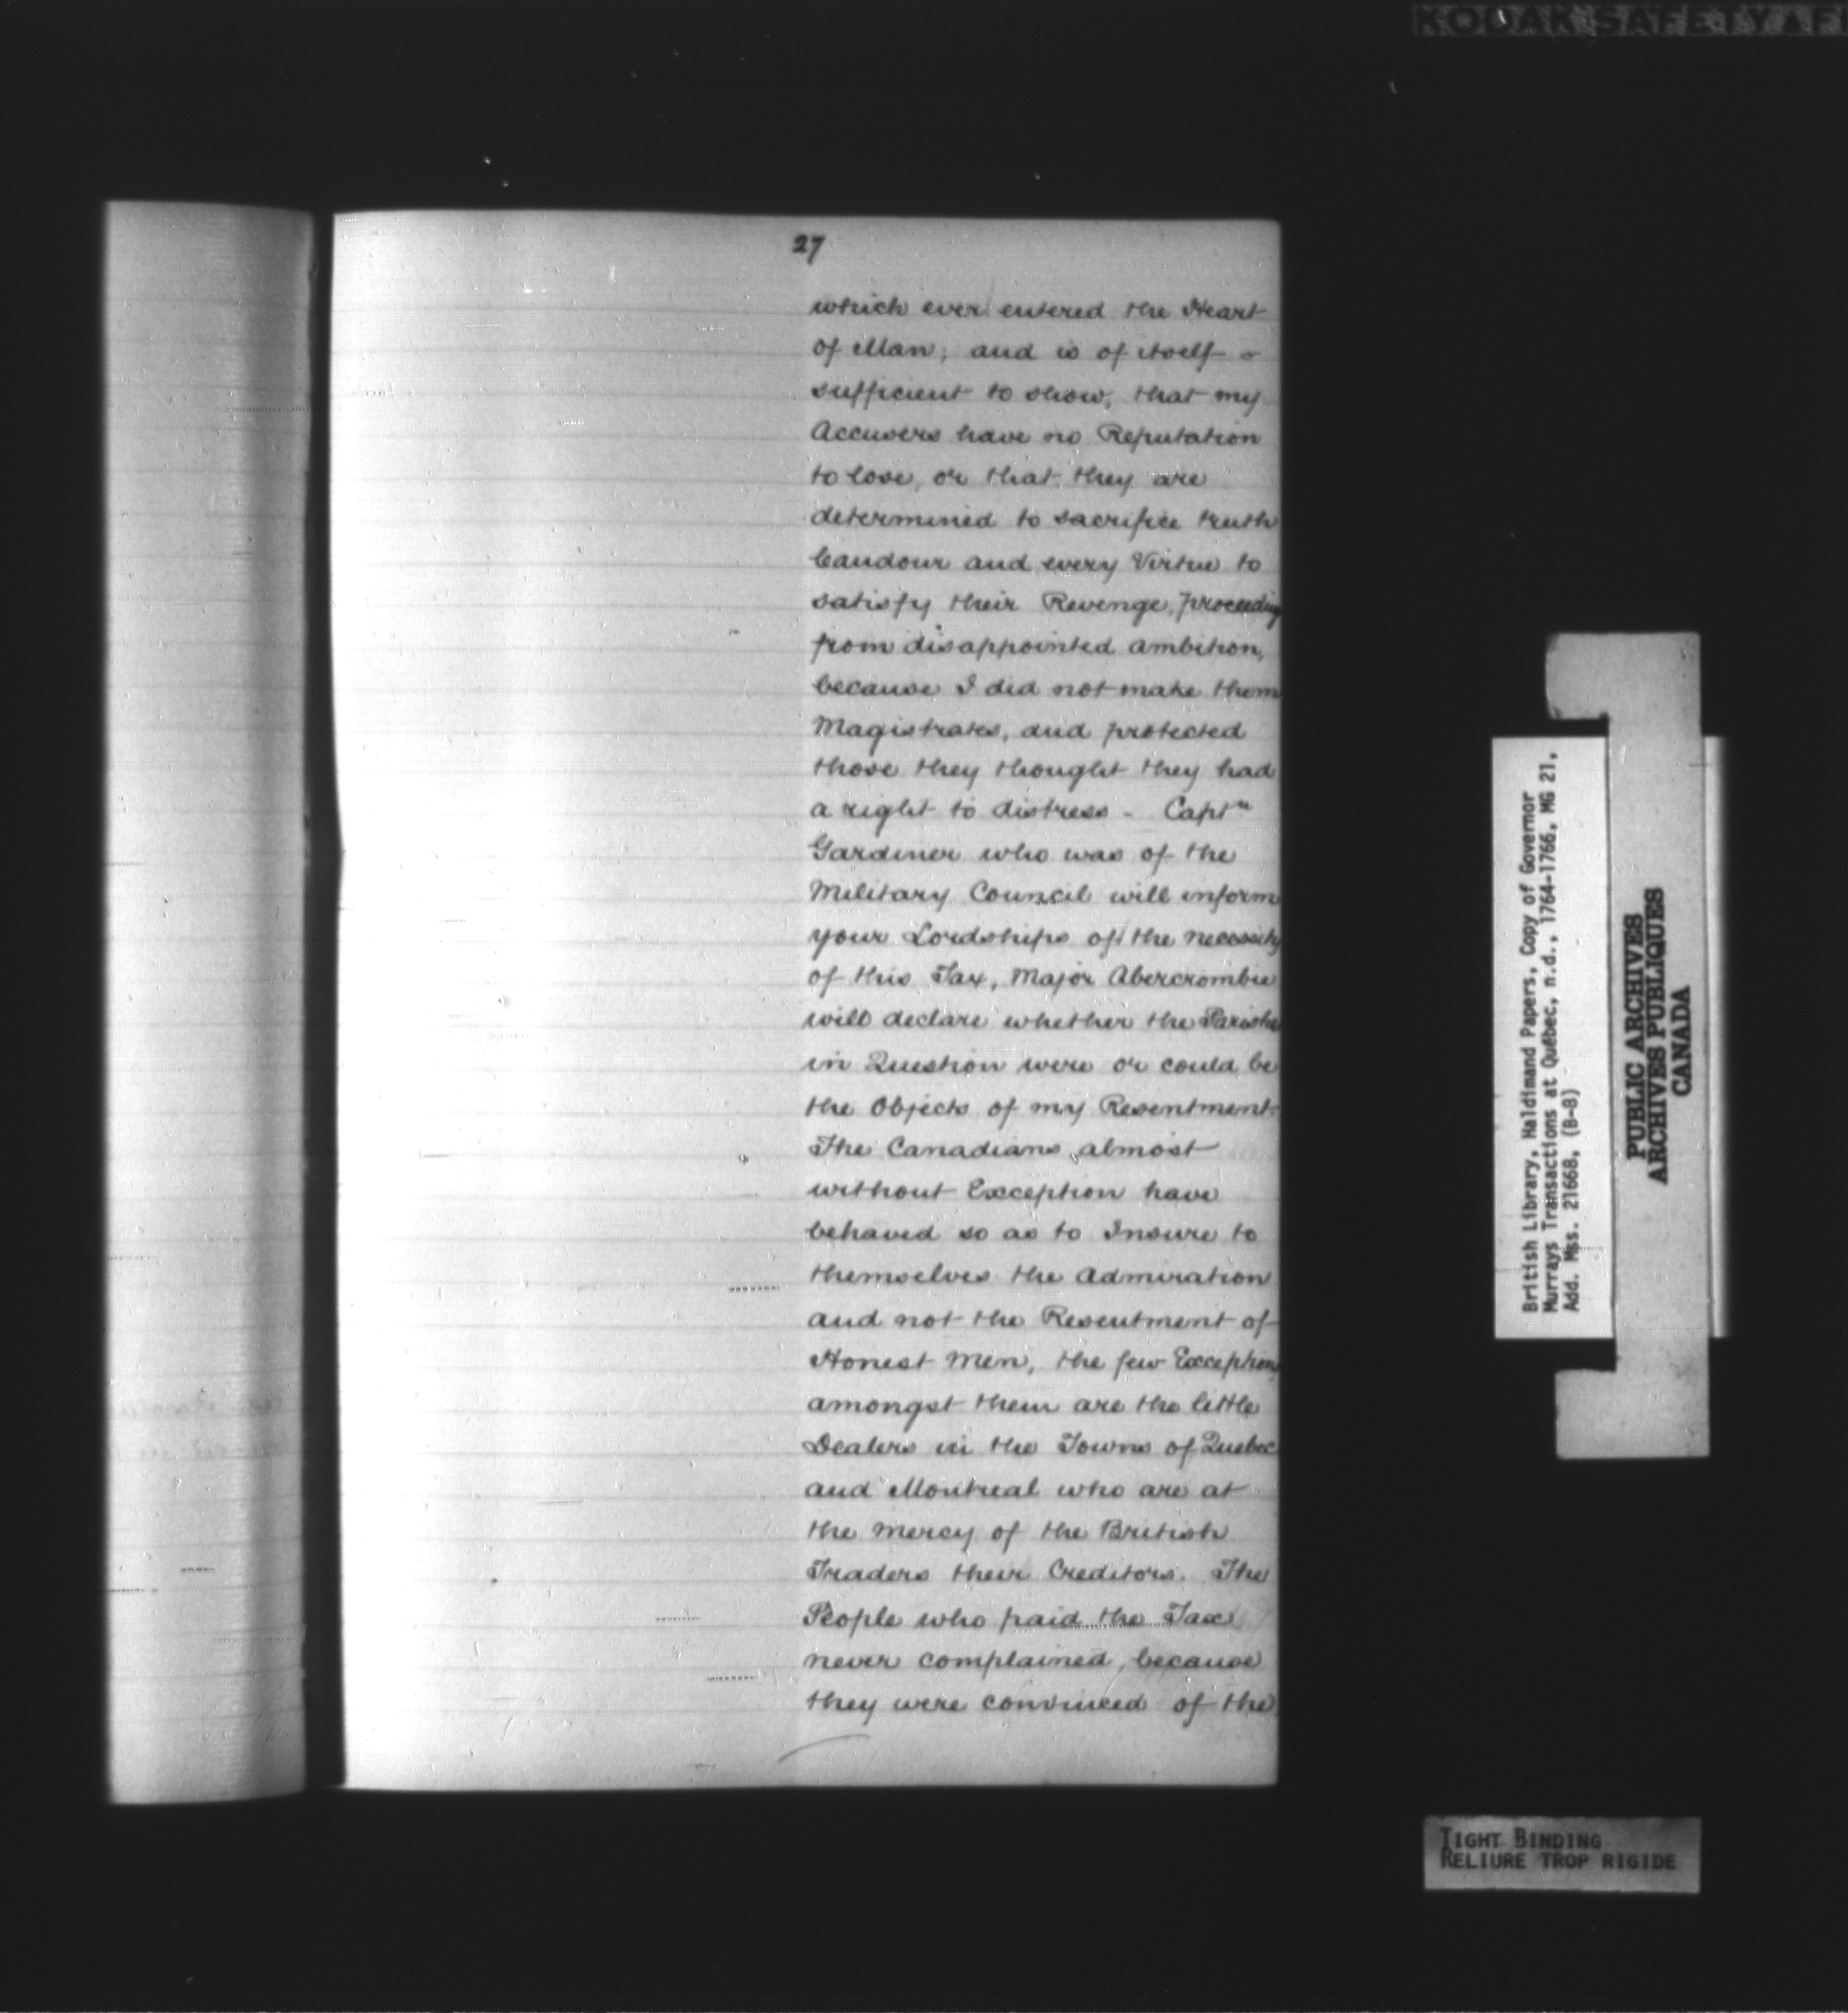 KODAK SAFETY
27
which ever entered the Heart
of Man; and is of itself
sufficient to show, that my
Accusers have no Reputation
to lose, or that they are
determined to sacrifice truth
Candour and every Virtue to
satisfy their Revenge, proceeding
from disappointed ambition,
because I did not make them
Magistrates, and protected
those they thought they had
a right to distress - Captn
Gardiner who was of the
Military Council will inform
your Lordships of the necessity
of this Tax, Major Abercrombie
will declare whether the Parishes
in Question were or could be
the Objects of my Resentment.
The Canadians, almost
without Exception have
behaved so as to Insure to
themselves the admiration
and not the Resentment of
Honest Men, the few Exceptions
amongst them are the little
Dealers in the Towns of Quebec
and Montreal who are at
the mercy of the British
Traders their Creditors. The
People who paid the Tax
never complained, because
they were convinced of the
British Library, Haldimand Papers, Copy of Governor
Murrays Transactions at Québec, n.d., 1764-1766, MG 21,
Add. Mss. 21668, (B-8)
PUBLIC ARCHIVES
ARCHIVES PUBLIQUES
CANADA
TIGHT BINDING
RELIURE TROP RIGIDE